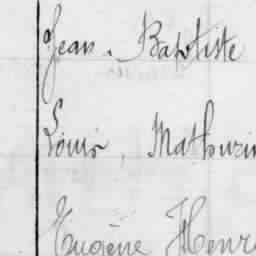 Jean, Baptiste
Louis, Mathurin
Eugène Henri